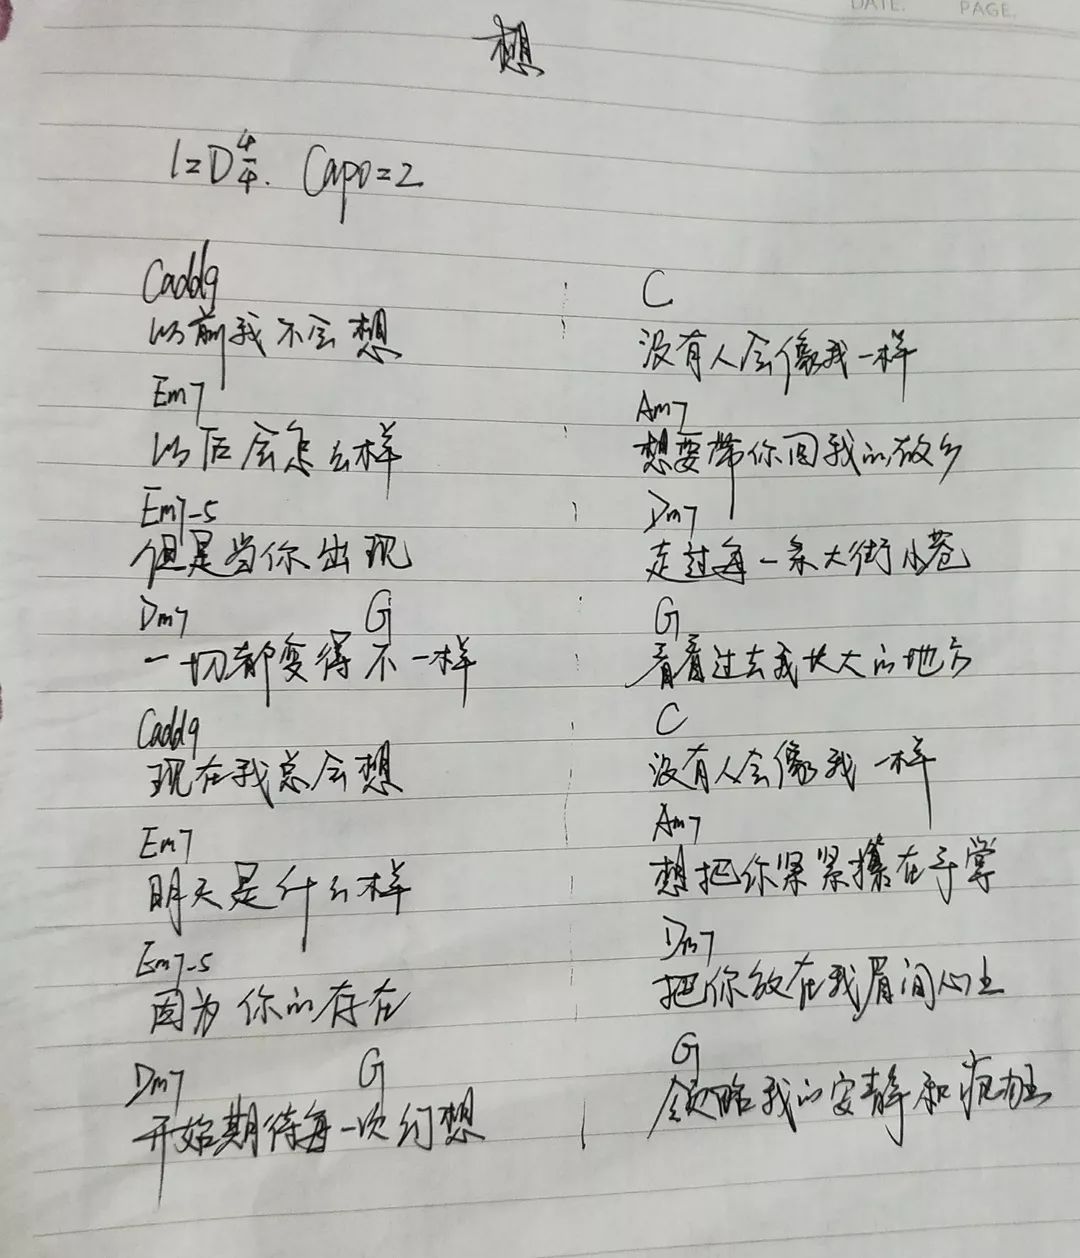 DATE. PAGE.
想
1=D 4/4. Capo=2
Cadd9
以前我不会想
Em7
以后会怎么样
Em7-5
但是当你出现
Dm7 G
一切都变得不一样
Cadd9
现在我总会想
Em7
明天是什么样
Em7-5
因为你的存在
Dm7 G
开始期待每一次幻想
C
没有人会像我一样
Am7
想要带你回我的故乡
Dm7
走过每一条大街小巷
G
看看过去我长大的地方
C
没有人会像我一样
Am7
想把你紧紧攥在手掌
Dm7
把你放在我眉间心上
G
领略我的安静和疯狂